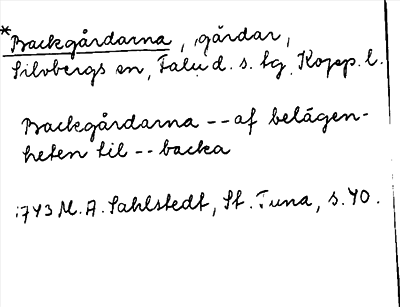 *Backgårdarna, gårdar,
Silvbergs sn, Falu d. s. lg. Kopp. l.
Backgårdarna -- af belägen-
heten til -- backa
1743 M. A. Sahlstedt, St. Tuna, s. 40.